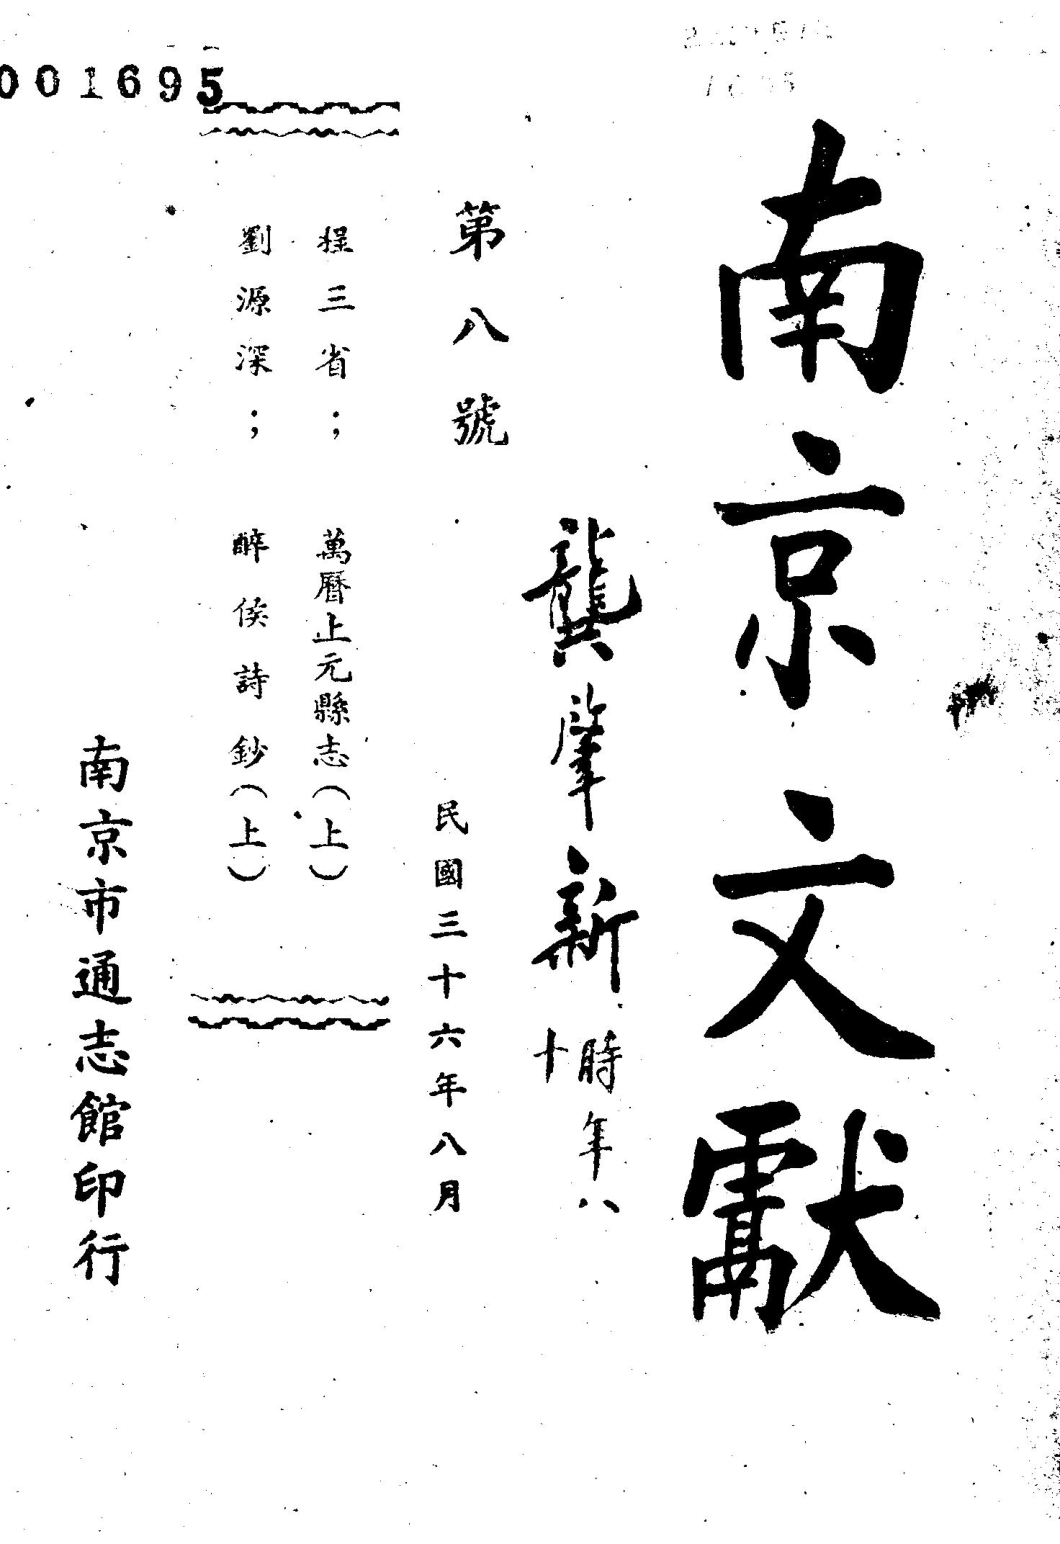 001695
南京文獻
龔肇新
時年八
十
第八號
民國三十六年八月
程三省；萬曆上元縣志（上）
劉源深；醉侯詩鈔（上）
南京市通志館印行